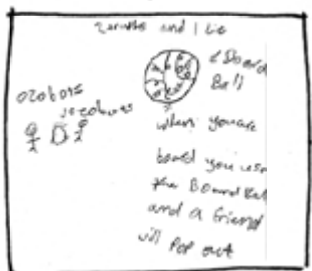 2 truths and 1 Lie
Board
Ball
ozobots
when you are
bored you use
the Board Ball
and a friend
will Pop out